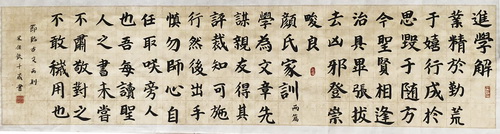 進學解
業精於勤荒
于嬉行成於
思毀于隨方
今聖賢相逢
治具畢張拔
去凶邪登崇
畯良
顏氏家訓
學為文章先
謀親友得其
評裁知可施
行然後出手
慎勿師心自
任取咲旁人
也吾每讀聖
人之書未嘗
不肅敬對之
不敢穢用也